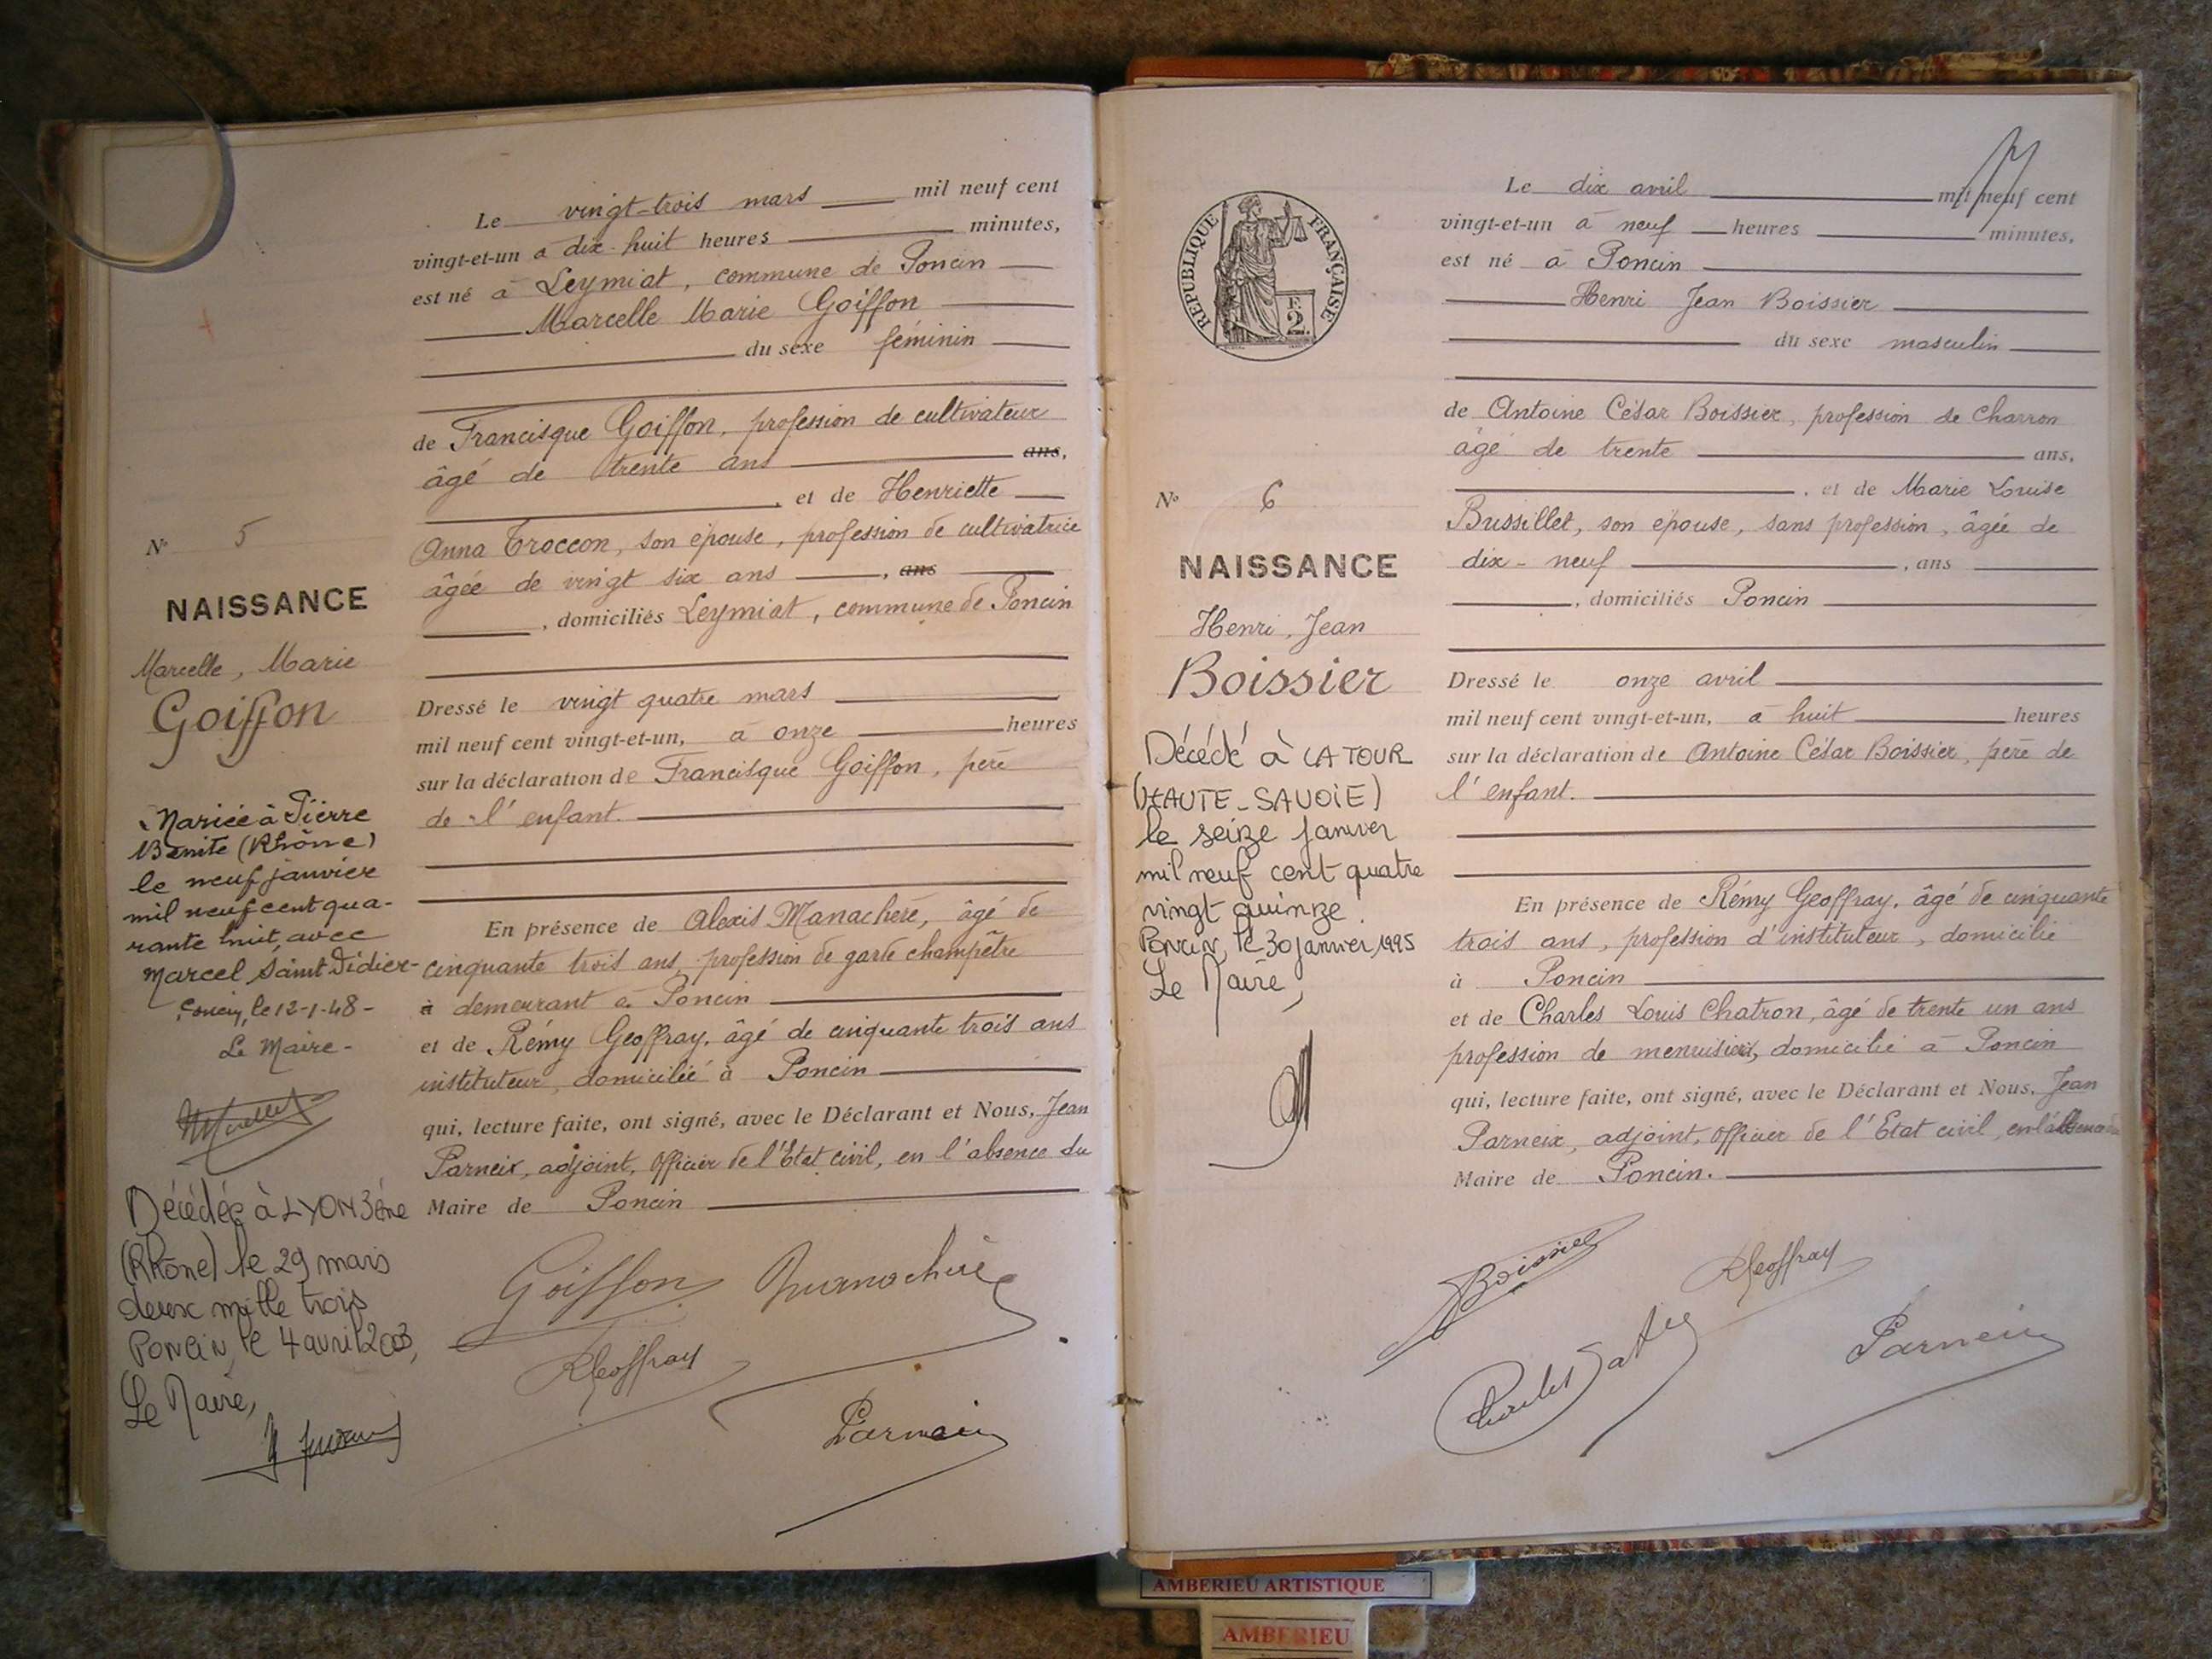 Le vingt-trois mars mil neuf cent
vingt-et-un à dix-huit heures minutes,
est né à Leymiat, commune de Poncin
Marcelle Marie Goiffon
du sexe féminin
de Francisque Goiffon, profession de cultivateur
âgé de trente ans ans,
, et de Henriette
Anna Troccon, son épouse, profession de cultivatrice
âgée de vingt six ans , ans
, domiciliés Leymiat, commune de Poncin
Dressé le vingt quatre mars
mil neuf cent vingt-et-un, à onze heures
sur la déclaration de Francisque Goiffon, père
de l'enfant.
En présence de Alexis Manachère, âgé de
cinquante trois ans, profession de garde champêtre
à demeurant à Poncin
et de Rémy Geoffray, âgé de cinquante trois ans
instituteur, domicilié à Poncin
qui, lecture faite, ont signé, avec le Déclarant et Nous, Jean
Parneix, adjoint, officier de l'Etat civil, en l'absence du
Maire de Poncin
Goiffon Manachère
RGeoffray
Parneix
N° 5
NAISSANCE
Marcelle, Marie
Goiffon
Mariée à Pierre
Bénite (Rhône)
le neuf janvier
mil neuf cent qua-
rante huit, avec
Marcel Saint Didier-
Poncin, le 12-1-48-
Le Maire-
Décédée à LYON 3ème
(Rhône) le 29 mars
deux mille trois
Poncin, le 4 avril 2003,
Le Maire,
7
REPUBLIQUE FRANÇAISE
2
Le dix avril mil neuf cent
vingt-et-un à neuf heures minutes,
est né à Poncin
Henri Jean Boissier
du sexe masculin
de Antoine César Boissier, profession de Charron
âgé de trente ans,
, et de Marie Louise
Bussillet, son épouse, sans profession, âgée de
dix-neuf , ans
, domiciliés Poncin
Dressé le onze avril
mil neuf cent vingt-et-un, à huit heures
sur la déclaration de Antoine César Boissier, père de
l'enfant.
En présence de Rémy Geoffray, âgé de cinquante
trois ans, profession d'instituteur, domicilié
à Poncin
et de Charles Louis Chatron, âgé de trente un ans
profession de menuisier, domicilié à Poncin
qui, lecture faite, ont signé, avec le Déclarant et Nous, Jean
Parneix, adjoint, officier de l'Etat civil, en l'absence du
Maire de Poncin.
Boissier RGeoffray
Charles
Parneix
N° 6
NAISSANCE
Henri, Jean
Boissier
Décédé à LA TOUR
(HAUTE-SAVOIE)
le seize janvier
mil neuf cent quatre
vingt quinze.
Poncin, le 30 janvier 1995
Le Maire,
AMBERIEU ARTISTIQUE
AMBERIEU